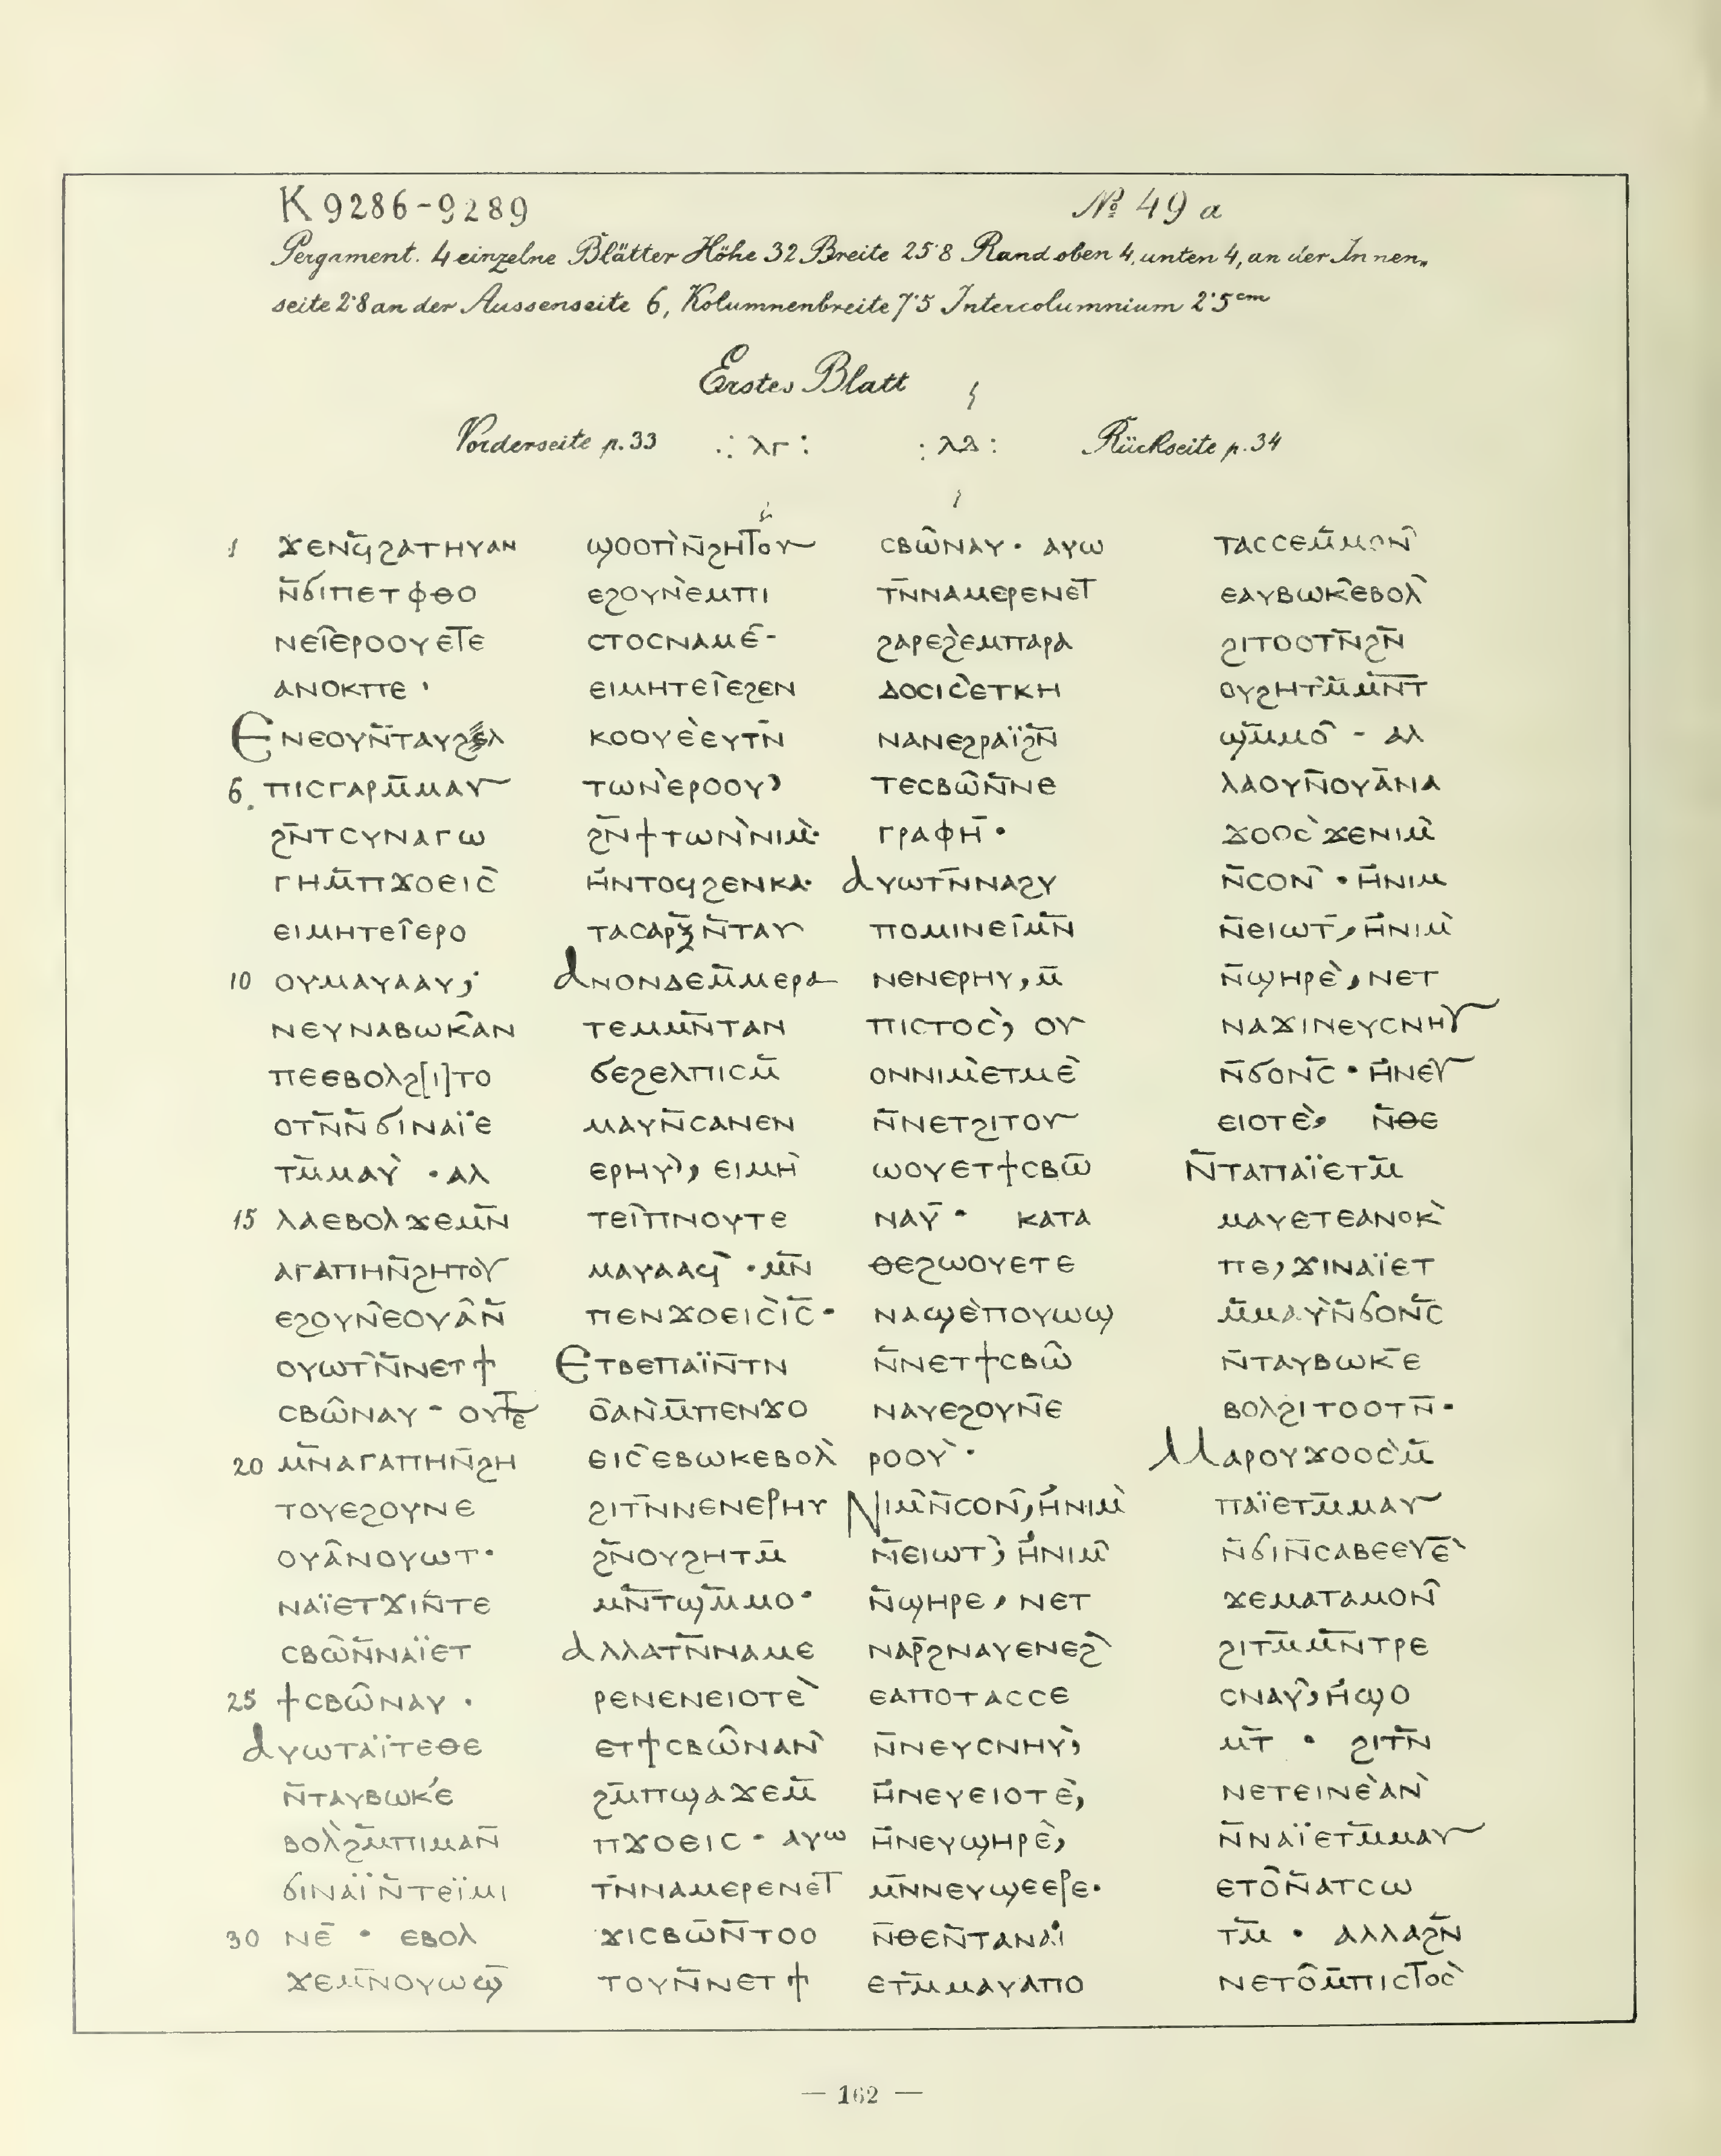 K 9286-9289
№ 49 a
Pergament. 4 einzelne Blätter Höhe 32 Breite 25·8 Rand oben 4, unten 4, an der Innen-
seite 2·8 an der Aussenseite 6, Kolumnenbreite 7·5 Intercolumnium 2·5 cm
Erstes Blatt
Vorderseite p. 33 ⲗⲅ :
: ⲗⲇ : Rückseite p. 34
1 ϫⲉⲛϥ̄ϩⲁⲧⲏⲩⲁⲛ
ⲛ̄ϭⲓⲡⲉⲧⲫⲑⲟ
ⲛⲉⲓ̂ⲉⲣⲟⲟⲩⲉⲧⲉ
ⲁⲛⲟⲕⲡⲉ ·
Ⲉⲛⲉⲟⲩⲛ̄ⲧⲁⲩϩⲉⲗ
6 ⲡⲓⲥⲅⲁⲣⲙ̄ⲙⲁⲩ
ϩⲛ̄ⲧⲥⲩⲛⲁⲅⲱ
ⲅⲏⲙ̄ⲡϫⲟⲉⲓⲥ̀
ⲉⲓⲙⲏⲧⲉⲓ̂ⲉⲣⲟ
10 ⲟⲩⲙⲁⲩⲁⲁⲩ;
ⲛⲉⲩⲛⲁⲃⲱⲕ̂ⲁⲛ
ⲡⲉⲉⲃⲟⲗϩ[ⲓ]ⲧⲟ
ⲟⲧⲛ̄ⲛ̄ϭⲓⲛⲁⲓ̈ⲉ
ⲧⲙ̄ⲙⲁⲩ̀ · ⲁⲗ
15 ⲗⲁⲉⲃⲟⲗϫⲉⲙⲛ̄
ⲁⲅⲁⲡⲏⲛ̄ϩⲏⲧⲟⲩ̀
ⲉϩⲟⲩⲛ̂ⲉⲟⲩⲁ̂ⲛ̄
ⲟⲩⲱⲧ̂ⲛ̄ⲛⲉⲧϯ
ⲥⲃⲱ̂ⲛⲁⲩ - ⲟⲩⲧⲉ
20 ⲙⲛ̄ⲁⲅⲁⲡⲏⲛ̄ϩⲏ
ⲧⲟⲩⲉϩⲟⲩⲛⲉ
ⲟⲩⲁ̂ⲛⲟⲩⲱⲧ·
ⲛⲁⲓ̈ⲉⲧϫⲓⲛ̄ⲧⲉ
ⲥⲃⲱ̂ⲛ̄ⲛⲁⲓ̈ⲉⲧ
25 ϯⲥⲃⲱ̂ⲛⲁⲩ ·
ⲁⲩⲱⲧⲁⲓ̈ⲧⲉⲑⲉ
ⲛ̄ⲧⲁⲩⲃⲱⲕⲉ́
ⲃⲟⲗ̀ϩⲙ̄ⲡⲓⲙⲁⲛ̄
ϭⲓⲛⲁⲓ̈ⲛ̄ⲧⲉⲓ̈ⲙⲓ
30 ⲛⲉ̄ · ⲉⲃⲟⲗ
ϫⲉⲙⲛ̄ⲟⲩⲱϣ̄
ϣⲟⲟⲡ̀ⲛ̄ϩⲏⲧⲟⲩ
ⲉϩⲟⲩⲛ̀ⲉⲙⲡⲓ
ⲥⲧⲟⲥⲛⲁⲙⲉ̄-
ⲉⲓⲙⲏⲧⲉⲓ̂ⲉϩⲉⲛ
ⲕⲟⲟⲩⲉ̀ⲉⲩⲧⲛ̄
ⲧⲱⲛ̀ⲉⲣⲟⲟⲩ
ϩⲛ̄ϯⲧⲱⲛ̀ⲛⲓⲙ̀·
ⲏ̄ⲛⲧⲟϥϩⲉⲛⲕⲁ·
ⲧⲁⲥⲁⲣⲝ̄ⲛ̄ⲧⲁⲩ
ⲁⲛⲟⲛⲇⲉⲙ̄ⲙⲉⲣⲁ
ⲧⲉⲙⲙⲛ̄ⲧⲁⲛ
ϭⲉϩⲉⲗⲡⲓⲥⲙ̄
ⲙⲁⲩⲛ̄ⲥⲁⲛⲉⲛ
ⲉⲣⲏⲩ̀, ⲉⲓⲙⲏ̀
ⲧⲉⲓ̂ⲡⲛⲟⲩⲧⲉ
ⲙⲁⲩⲁⲁϥ̀ · ⲙⲛ̄
ⲡⲉⲛϫⲟⲉⲓⲥ̀ⲓ̄ⲥ̄·
Ⲉⲧⲃⲉⲡⲁⲓ̈ⲛ̄ⲧⲛ
ⲟ̄ⲁⲛ̀ⲙ̄ⲡⲉⲛϫⲟ
ⲉⲓⲥ̀ⲉⲃⲱⲕⲉⲃⲟⲗ̀
ϩⲓⲧⲛ̄ⲛⲉⲛⲉⲣⲏⲩ
ϩⲛ̄ⲟⲩϩⲏⲧⲙ̄
ⲙⲛ̄ⲧϣⲙ̄ⲙⲟ·
ⲁⲗⲗⲁⲧⲛ̄ⲛⲁⲙⲉ
ⲣⲉⲛⲉⲛⲉⲓⲟⲧⲉ̀
ⲉⲧϯⲥⲃⲱ̂ⲛⲁⲛ̀
ϩⲙ̄ⲡϣⲁϫⲉⲙ̄
ⲡϫⲟⲉⲓⲥ - ⲁⲩⲱ
ⲧⲛ̄ⲛⲁⲙⲉⲣⲉⲛⲉⲧ
ϫⲓⲥⲃⲱ̄ⲛ̄ⲧⲟⲟ
ⲧⲟⲩⲛ̄ⲛⲉⲧϯ
ⲥⲃⲱ̂ⲛⲁⲩ · ⲁⲩⲱ
ⲧⲛ̄ⲛⲁⲙⲉⲣⲉⲛⲉⲧ
ϩⲁⲣⲉϩ̀ⲉⲙⲡⲁⲣⲁ
ⲇⲟⲥⲓⲥ̀ⲉⲧⲕⲏ
ⲛⲁⲛⲉϩⲣⲁⲓ̈ϩⲛ̄
ⲧⲉⲥⲃⲱ̂ⲛ̄ⲛⲉ
ⲅⲣⲁⲫⲏ̄ ·
ⲁⲩⲱⲧⲛ̄ⲛⲁϩⲩ
ⲡⲟⲙⲓⲛⲉⲓ̂ⲙⲛ̄
ⲛⲉⲛⲉⲣⲏⲩ, ⲙ̄
ⲡⲓⲥⲧⲟⲥ̀, ⲟⲩ
ⲟⲛⲛⲓⲙ̀ⲉⲧⲙⲉ̀
ⲛ̄ⲛⲉⲧϩⲓⲧⲟⲩ
ⲱⲟⲩⲉⲧϯⲥⲃⲱ̄
ⲛⲁⲩ̄ · ⲕⲁⲧⲁ
ⲑⲉϩⲱⲟⲩⲉⲧⲉ
ⲛⲁϣⲉ̀ⲡⲟⲩⲱϣ
ⲛ̄ⲛⲉⲧϯⲥⲃⲱ̂
ⲛⲁⲩⲉϩⲟⲩⲛ̄ⲉ
ⲣⲟⲟⲩ̀ ·
Ⲛⲓⲙ̀ⲛ̄ⲥⲟⲛ̀, ⲏ̄ⲛⲓⲙ̀
ⲛ̄ⲉⲓⲱⲧ̀, ⲏ̄ⲛⲓⲙ̀
ⲛ̄ϣⲏⲣⲉ, ⲛⲉⲧ
ⲛⲁⲣ̄ϩⲛⲁⲩⲉⲛⲉϩ̀
ⲉⲁⲡⲟⲧⲁⲥⲥⲉ
ⲛ̄ⲛⲉⲩⲥⲛⲏⲩ̀,
ⲏ̄ⲛⲉⲩⲉⲓⲟⲧⲉ̀,
ⲏ̄ⲛⲉⲩϣⲏⲣⲉ̀,
ⲙⲛ̄ⲛⲉⲩϣⲉⲉⲣⲉ·
ⲛ̄ⲑⲉⲛ̄ⲧⲁⲛⲁⲓ
ⲉⲧⲙ̄ⲙⲁⲩⲁⲡⲟ
ⲧⲁⲥⲥⲉⲙ̄ⲙⲟⲛ̂
ⲉⲁⲩⲃⲱⲕ̂ⲉⲃⲟⲗ̀
ϩⲓⲧⲟⲟⲧⲛ̄ϩⲛ̄
ⲟⲩϩⲏⲧ̀ⲙ̄ⲙⲛ̄ⲧ
ϣⲙ̄ⲙⲟ̂ - ⲁⲗ
ⲗⲁⲟⲩⲛ̄ⲟⲩⲁ̄ⲛⲁ
ϫⲟⲟⲥ̀ϫⲉⲛⲓⲙ̀
ⲛ̄ⲥⲟⲛ̀ · ⲏ̄ⲛⲓⲙ
ⲛ̄ⲉⲓⲱⲧ̀, ⲏ̄ⲛⲓⲙ̀
ⲛ̄ϣⲏⲣⲉ̀, ⲛⲉⲧ
ⲛⲁϫⲓⲛⲉⲩⲥⲛⲏⲩ
ⲛ̄ϭⲟⲛⲥ̄ · ⲏ̄ⲛⲉⲩ
ⲉⲓⲟⲧⲉ̀, ⲛ̄ⲑⲉ
ⲛ̄ⲧⲁⲡⲁⲓ̈ⲉⲧⲙ̄
ⲙⲁⲩⲉⲧⲉⲁⲛⲟⲕ̀
ⲡⲉ, ϫⲓⲛⲁⲓ̈ⲉⲧ
ⲙ̄ⲙⲁⲩ̀ⲛ̄ϭⲟⲛⲥ̄
ⲛ̄ⲧⲁⲩⲃⲱⲕ̄ⲉ
ⲃⲟⲗϩⲓⲧⲟⲟⲧⲛ̄·
Ⲙⲁⲣⲟⲩϫⲟⲟⲥ̀ⲙ̄
ⲡⲁⲓ̈ⲉⲧⲙ̄ⲙⲁⲩ
ⲛ̄ϭⲓⲛ̄ⲥⲁⲃⲉⲉⲩⲉ̀
ϫⲉⲙⲁⲧⲁⲙⲟⲛ̂
ϩⲓⲧⲙ̄ⲙⲛ̄ⲧⲣⲉ
ⲥⲛⲁⲩ̀, ⲏ̄ϣⲟ
ⲙⲧ̄ · ϩⲓⲧⲛ̄
ⲛⲉⲧⲉⲓⲛⲉ̀ⲁⲛ̀
ⲛ̄ⲛⲁⲓ̈ⲉⲧⲙ̄ⲙⲁⲩ
ⲉⲧⲟ̂ⲛ̄ⲁⲧⲥⲱ
ⲧⲙ̄ · ⲁⲗⲗⲁϩⲛ̄
ⲛⲉⲧⲟ̂ⲙ̄ⲡⲓⲥⲧⲟⲥ̀
— 162 —